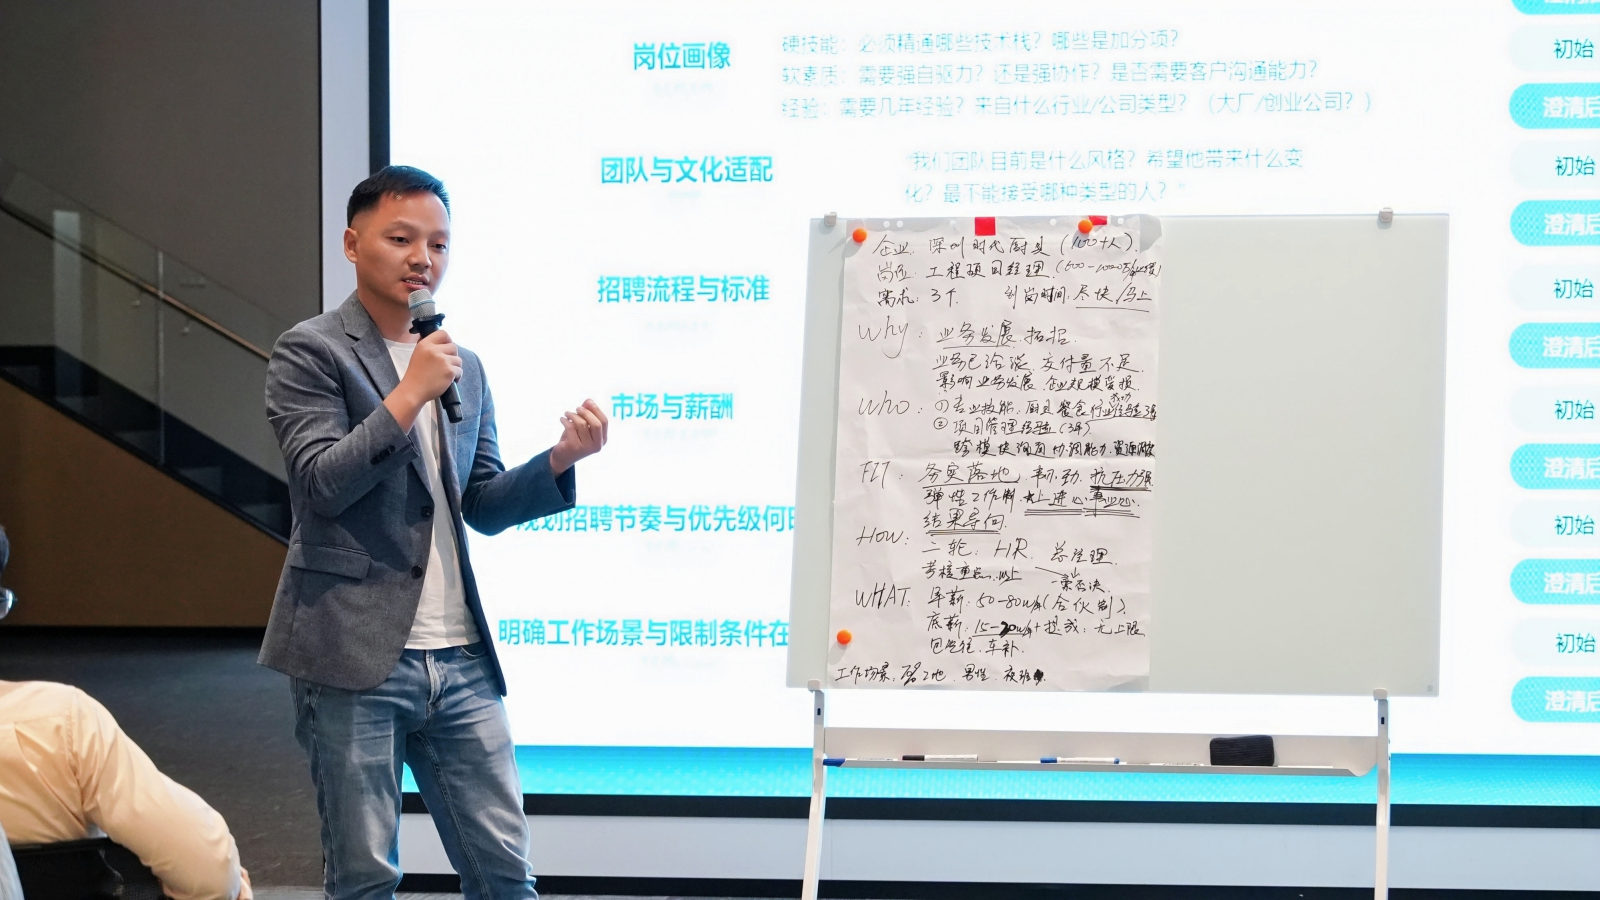 岗位画像
硬技能：必须精通哪些技术栈？哪些是加分项？
软素质：需要强自驱力？还是强协作？是否需要客户沟通能力？
经验：需要几年经验？来自什么行业/公司类型？（大厂/创业公司？）
团队与文化适配
“我们团队目前是什么风格？希望他带来什么变
化？最不能接受哪种类型的人？”
招聘流程与标准
市场与薪酬
规划招聘节奏与优先级何时
明确工作场景与限制条件在
初始
澄清后
初始
澄清后
初始
澄清后
初始
澄清后
初始
澄清后
初始
澄清后
企业：深圳时代厨具（100+人）.
岗位：工程项目经理
需求：3个 到岗时间：尽快/马上
Why：业务发展.拓招.
业务已洽谈.交付量不足.
影响业务发展.企业规模受损.
Who：①专业技能.厨具餐食行业
②项目管理经验（3年）
跨模块沟通协调能力.
FIT：务实落地.韧劲.抗压力强
弹性工作制 上进心.事业心.
结果导向.
HOW：二轮：HR 总经理
考核重点.以上 一票否决.
WHAT：年薪：50-80w/年（合伙制）.
底薪：15-20w/年+提成：无上限
包吃住.车补.
工作场景. 工地.男性.夜班